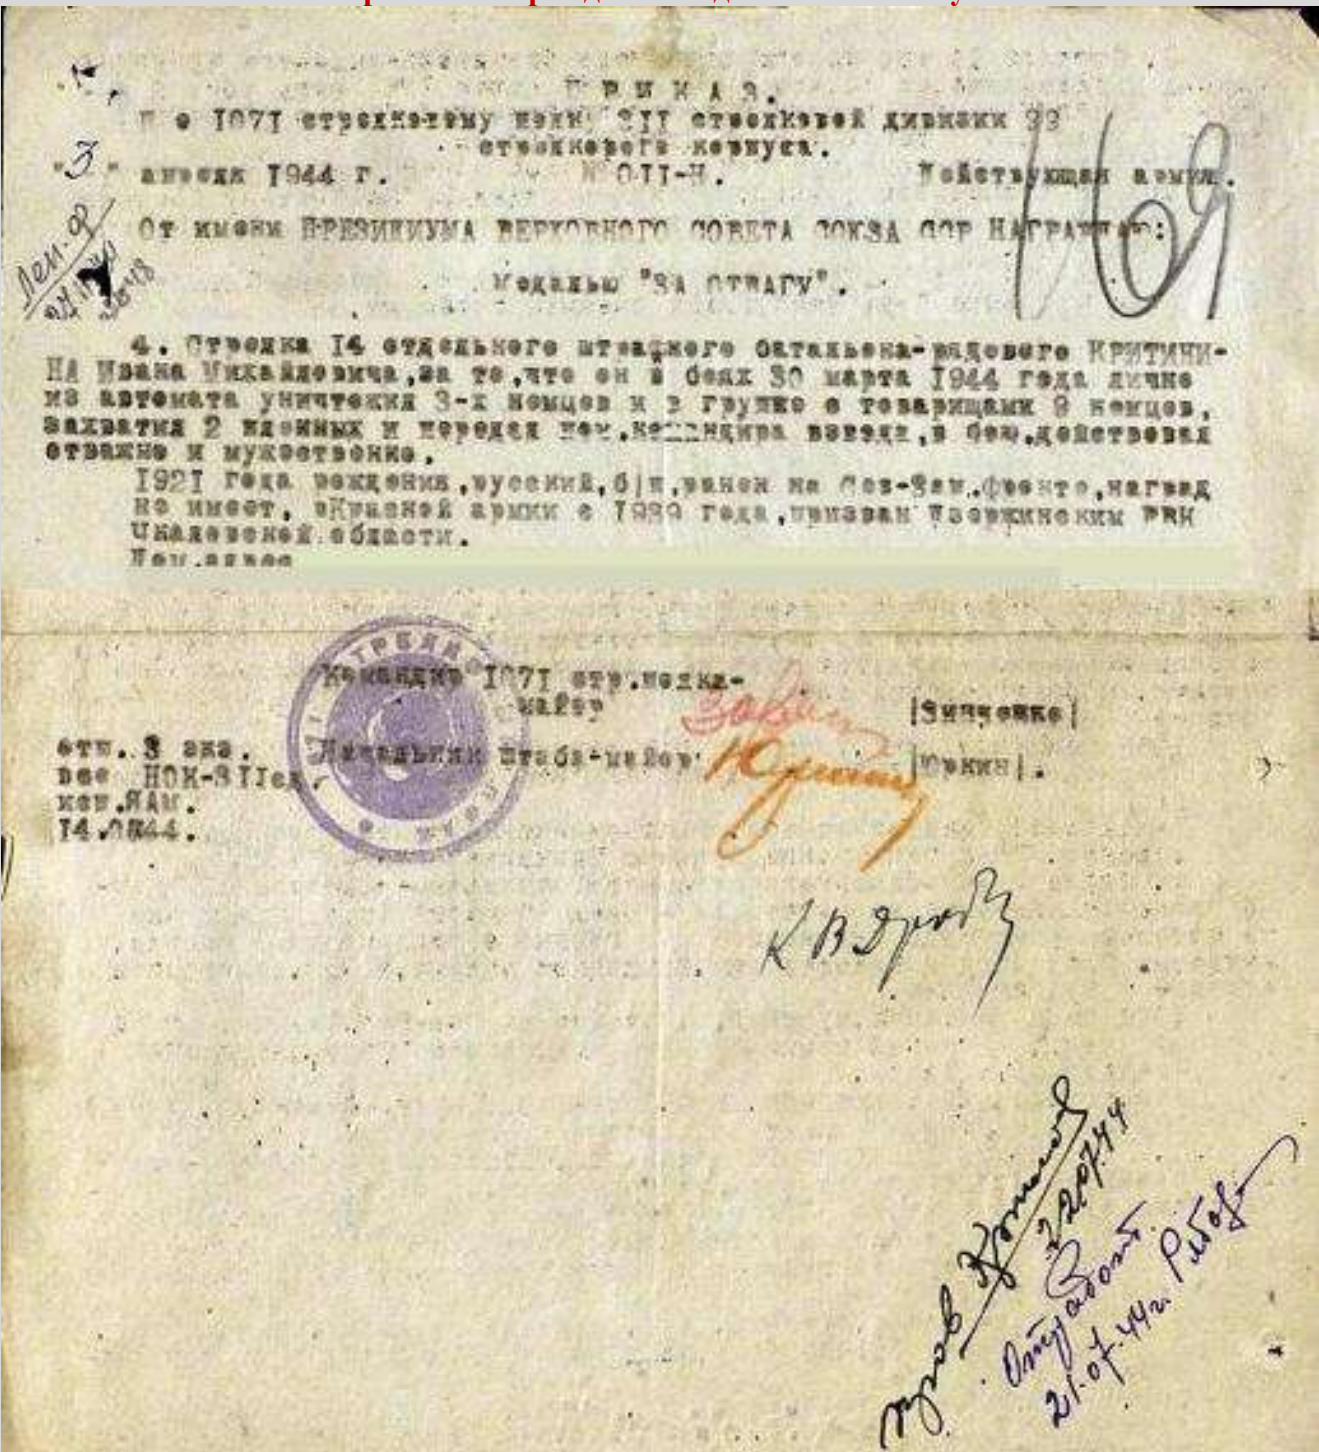 ПРИКАЗ.
По 1071 стрелковому полку 311 стрелковой дивизии 99
стрелкового корпуса.
"3" апреля 1944 г. № 011-Н. Действующая армия.
169
От имени ПРЕЗИДИУМА ВЕРХОВНОГО СОВЕТА СОЮЗА ССР НАГРАЖДАЮ:
Лен. ф
Медалью "ЗА ОТВАГУ".
4. Стрелка 14 отдельного штрафного батальона-рядового КРИТИНИ-
НА Ивана Михайловича,за то,что он в боях 30 марта 1944 года лично
из автомата уничтожил 3-х немцев и в группе с товарищами 9 немцев,
захватил 2 пленных и передал пом.командира взвода,в бою.действовал
отважно и мужественно.
1921 года рождения,русский,б|п,ранен на Сев-Зап.фронте,наград
не имеет, вКрасной армии с 1939 года,призван Дзержинским РВК
Чкаловской области.
Дом.адрес
Командир 1071 стр.полка-
майор |Зинченко|
Начальник штаба-майор |Юркин|.
отп. 3 экз.
исп.ЯАМ.
К В Дроб
22.07.44
Отработ.
21.07.44г.